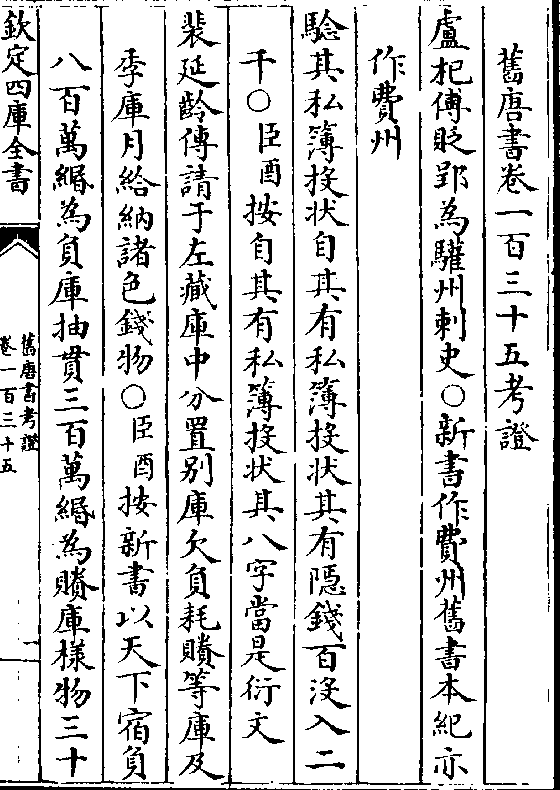 舊唐書卷一百三十五考證
盧杞傳貶郢為驩州刺史○新書作費州舊書本紀亦
作費州
驗其私簿投狀自其有私簿投狀其有隱錢百沒入二
千○臣酉按自其有私簿投狀其八字當是衍文
裴延齡傳請于左藏庫中分置别庫欠負耗賸等庫及
季庫月給納諸色錢物○臣酉按新書以天下宿負
八百萬緡為負庫抽貫三百萬緡為賸庫様物三十
欽定四庫全書
舊唐書考證
卷一百三十五
一